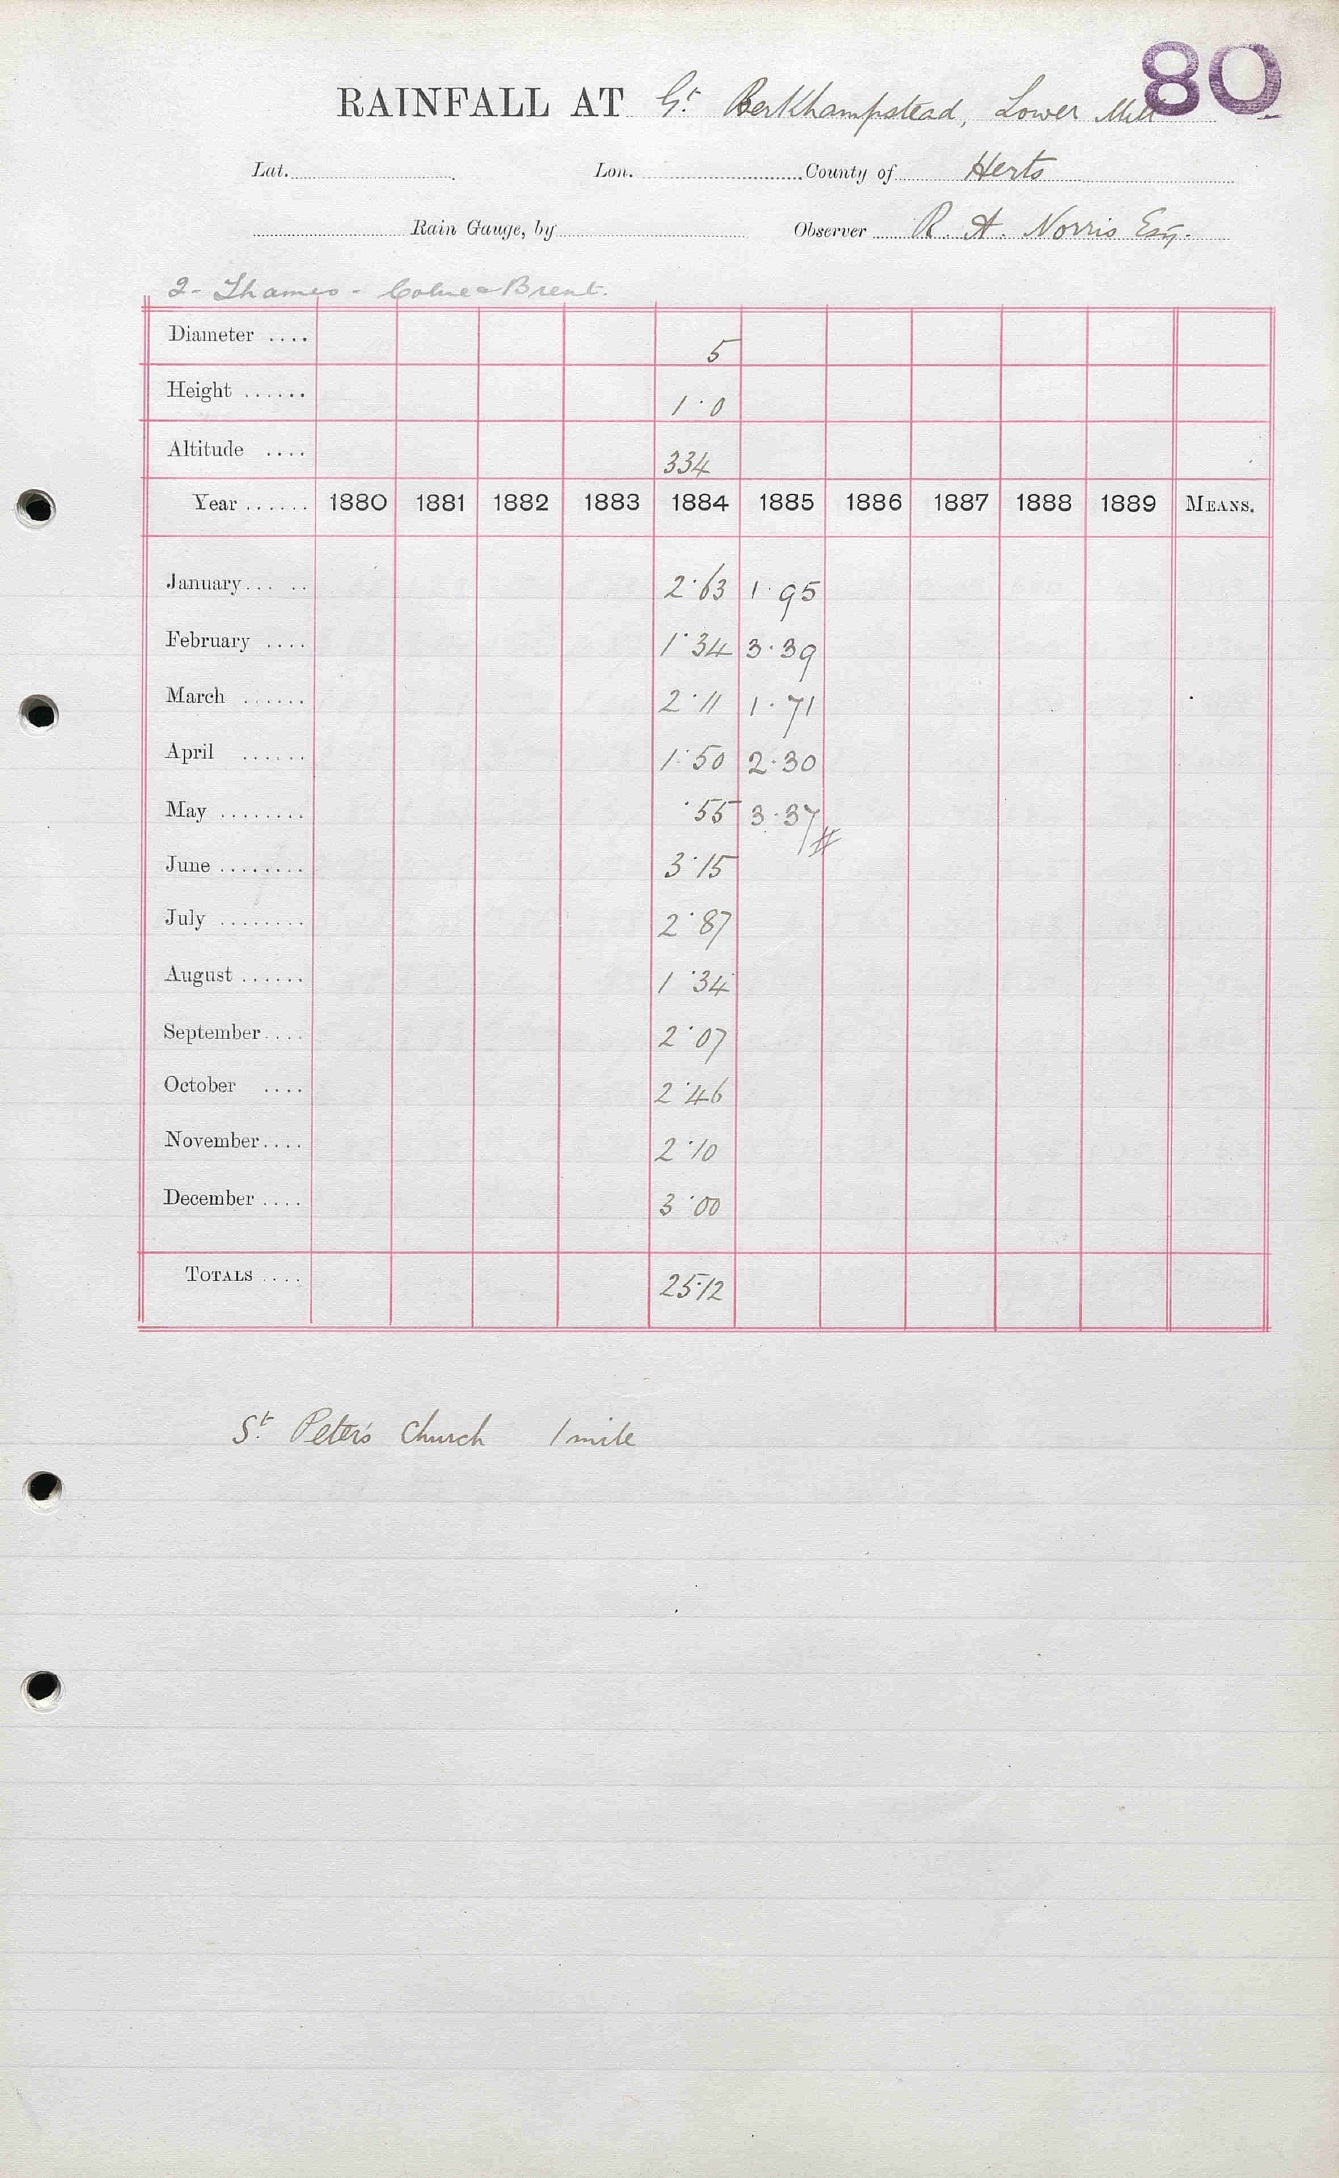 80
RAINFALL AT Gt. Berkhampstead, Lower Mill
Lat. Lon. County of Herts
Rain Gauge, by Observer R. A. Norris Esq.
2 - Thames - Colne & Brent.
Diameter .... 5
Height ...... 1·0
Altitude .... 334
Year ...... 1880 1881 1882 1883 1884 1885 1886 1887 1888 1889 MEANS.
January ... .. 2·63 1·95
February .... 1·34 3·39
March ...... 2·11 1·71
April ...... 1·50 2·30
May ........ ·55 3·37 #
June ........ 3·15
July ........ 2·87
August ...... 1·34
September .... 2·07
October .... 2·46
November .... 2·10
December .... 3·00
TOTALS .... 25·12
St. Peter's Church 1 mile